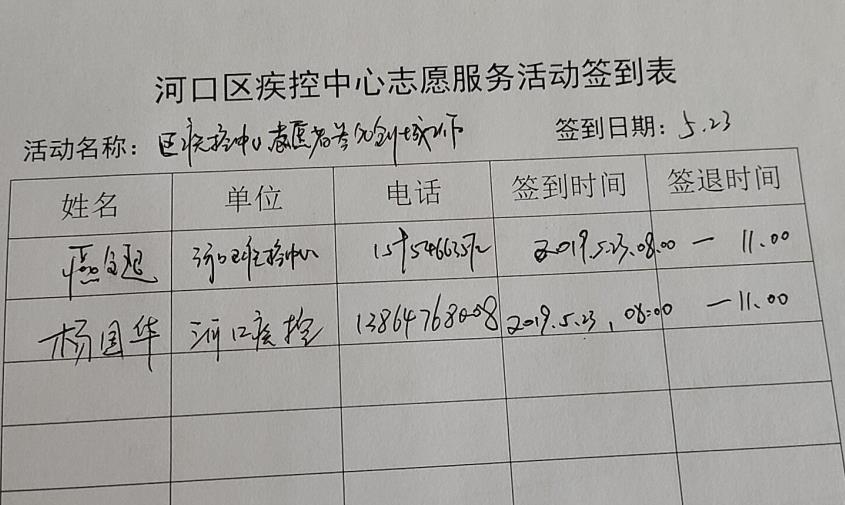 河口区疾控中心志愿服务活动签到表
活动名称：区疾控中心志愿者 签到日期：5.23
姓名 单位 电话 签到时间 签退时间
河口区疾控中心 2019.5.23.08.00 — 11.00
杨国华 河口疾控 13864768008 2019.5.23，08:00 —11.00